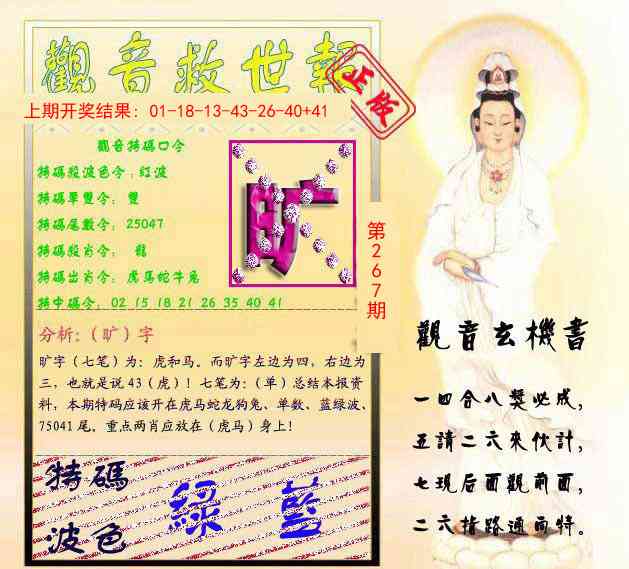 觀音救世報
正版
上期开奖结果：01-18-13-43-26-40+41
觀音特碼口令
特碼殺波色令：红波
特碼單雙令： 雙
特碼尾數令：25047
特碼殺肖令： 龍
特碼出肖令：虎马蛇牛兔
特中碼令：02 15 18 21 26 35 40 41
旷
第267期
分析：（旷）字
旷字（七笔）为：虎和马。而旷字左边为四，右边为
三，也就是说 43（虎）！七笔为：（单）总结本报资
料，本期特码应该开在虎马蛇龙狗兔、单数、蓝绿波、
75041 尾。重点两肖应放在（虎马）身上！
特碼
波色
綠 藍
觀音玄機書
一四合八獎必成，
五請二六來伙計，
七現后面觀前面，
二六指路通而特。